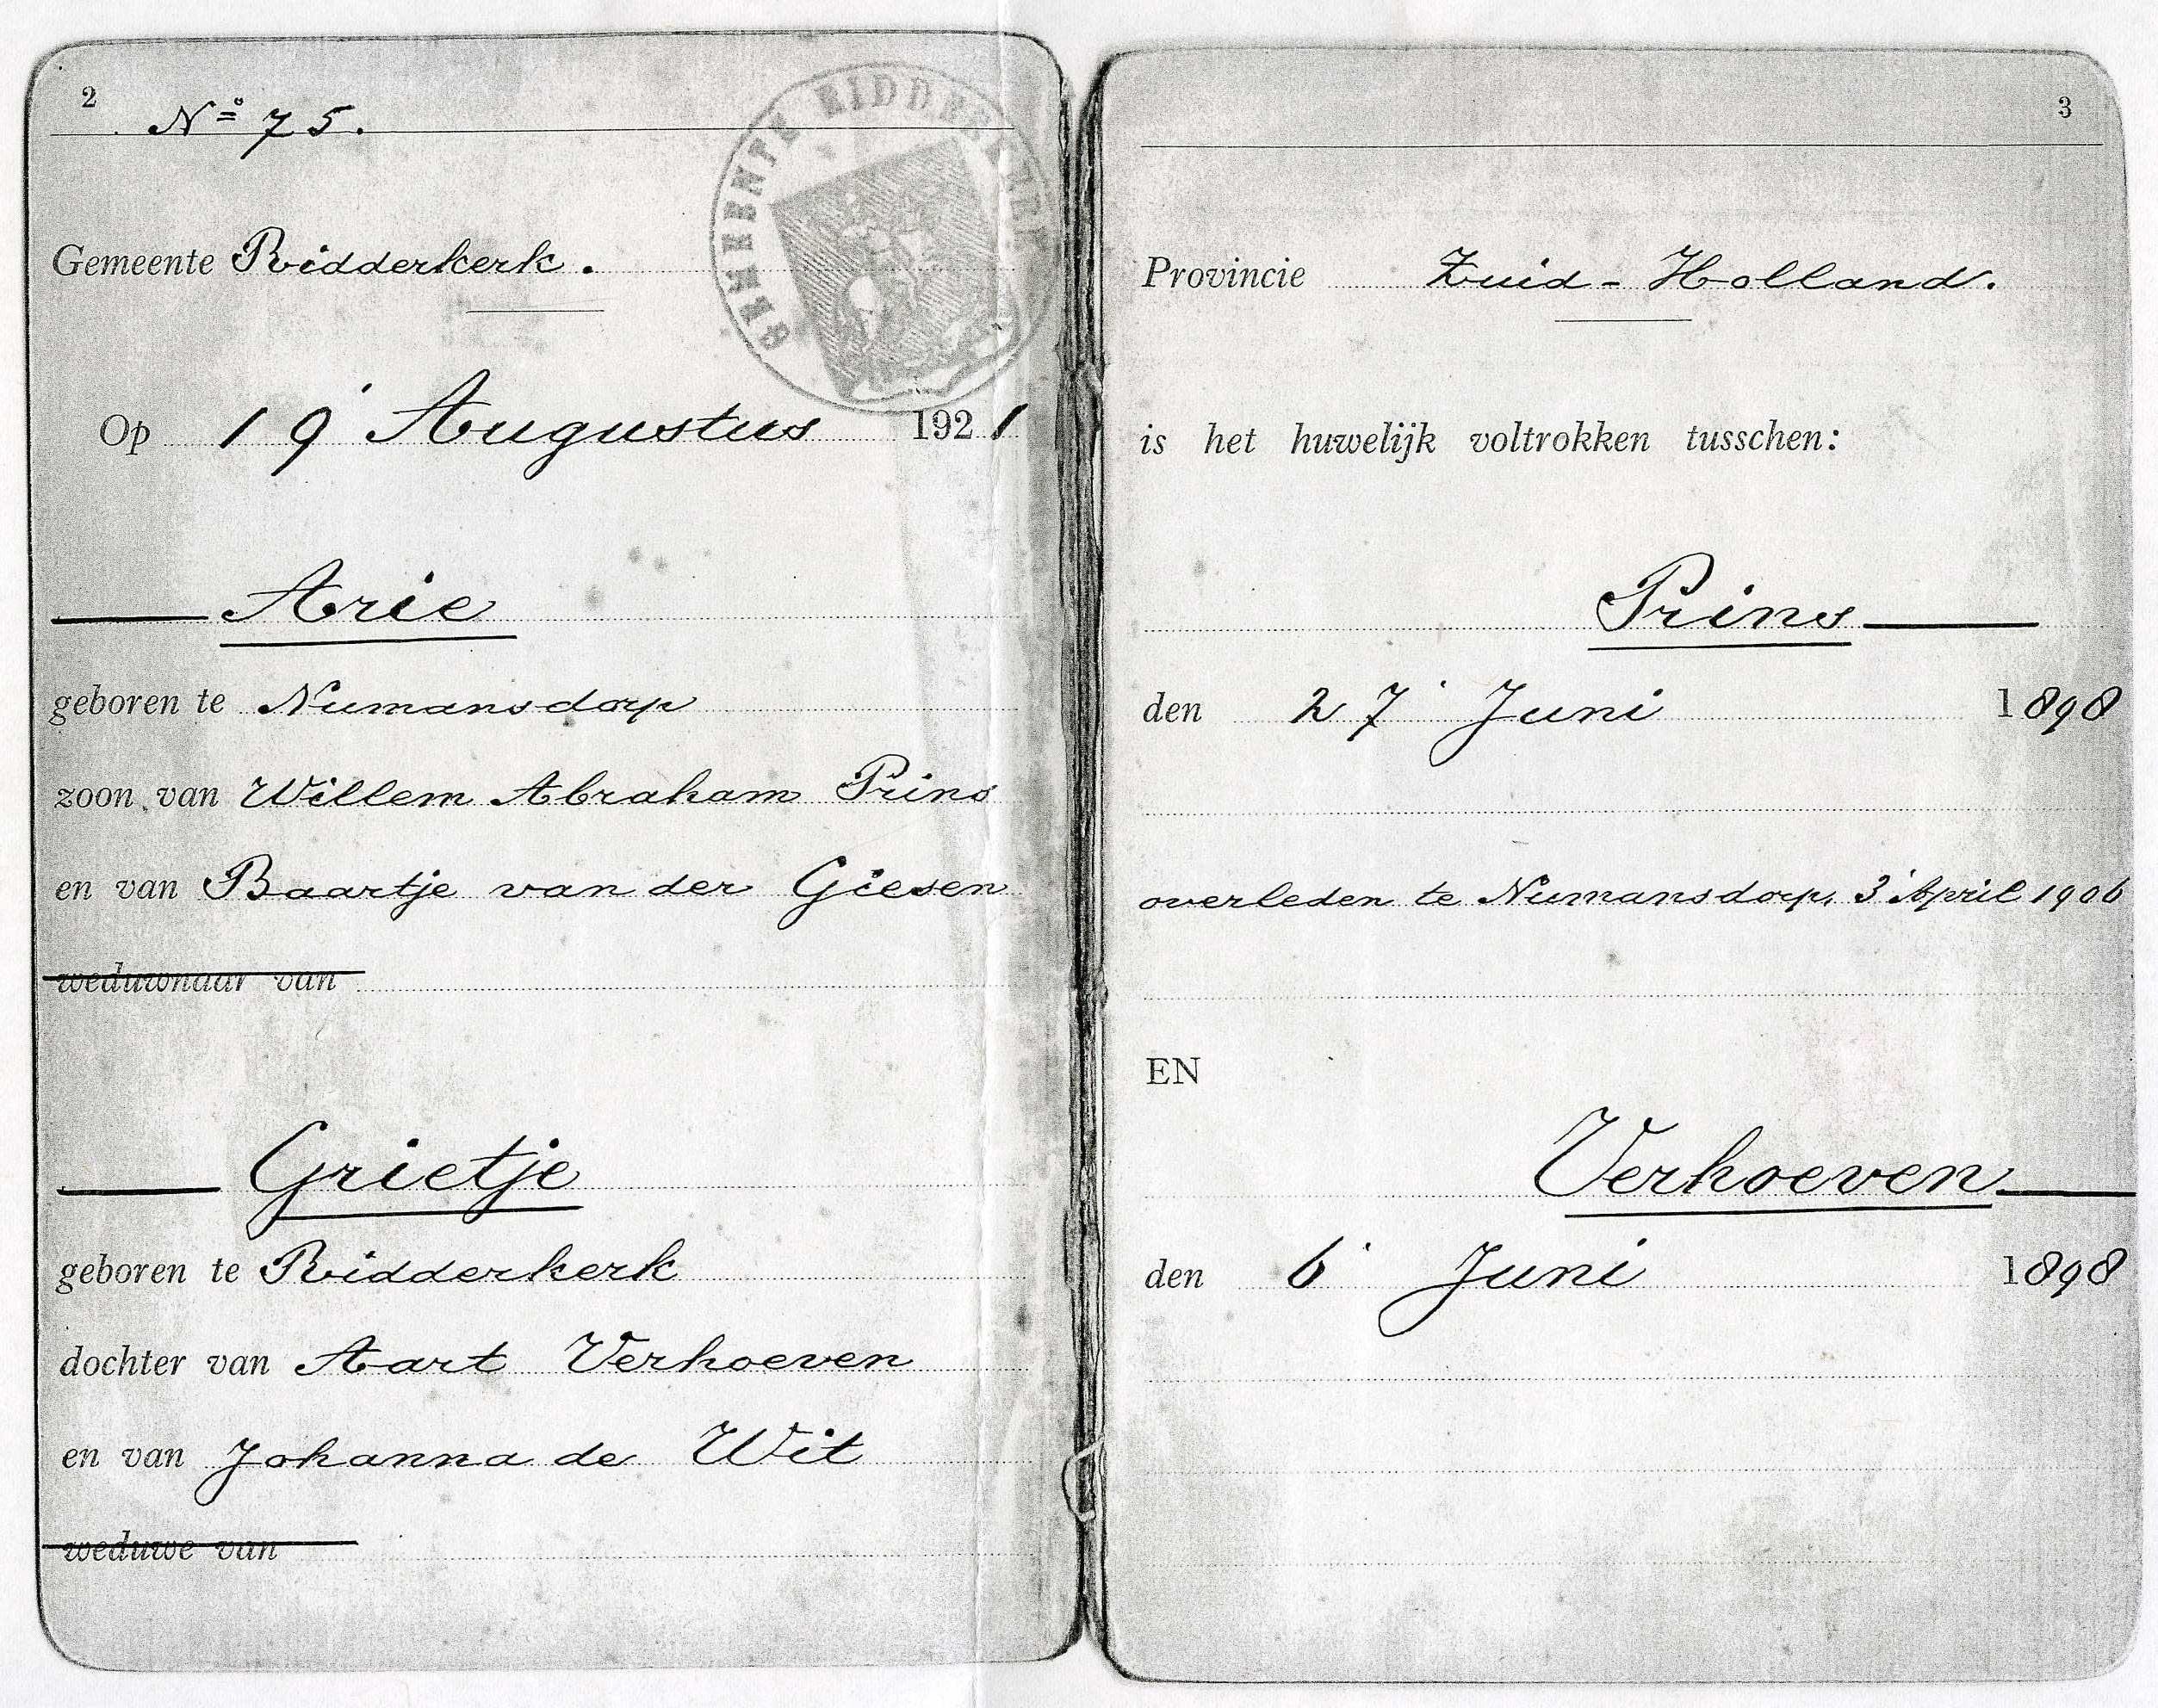 2
Nº 75.
GEMEENTE RIDDERKERK
Gemeente Ridderkerk.
Op 19 Augustus 1921
Arie
geboren te Numansdorp
zoon van Willem Abraham Prins
en van Baartje van der Giesen
weduwnaar van
Grietje
geboren te Ridderkerk
dochter van Aart Verhoeven
en van Johanna de Wit
weduwe van
3
Provincie Zuid-Holland.
is het huwelijk voltrokken tusschen:
Prins
den 27 Juni 1898
overleden te Numansdorp, 3 April 1906
EN
Verhoeven
den 6 Juni 1898